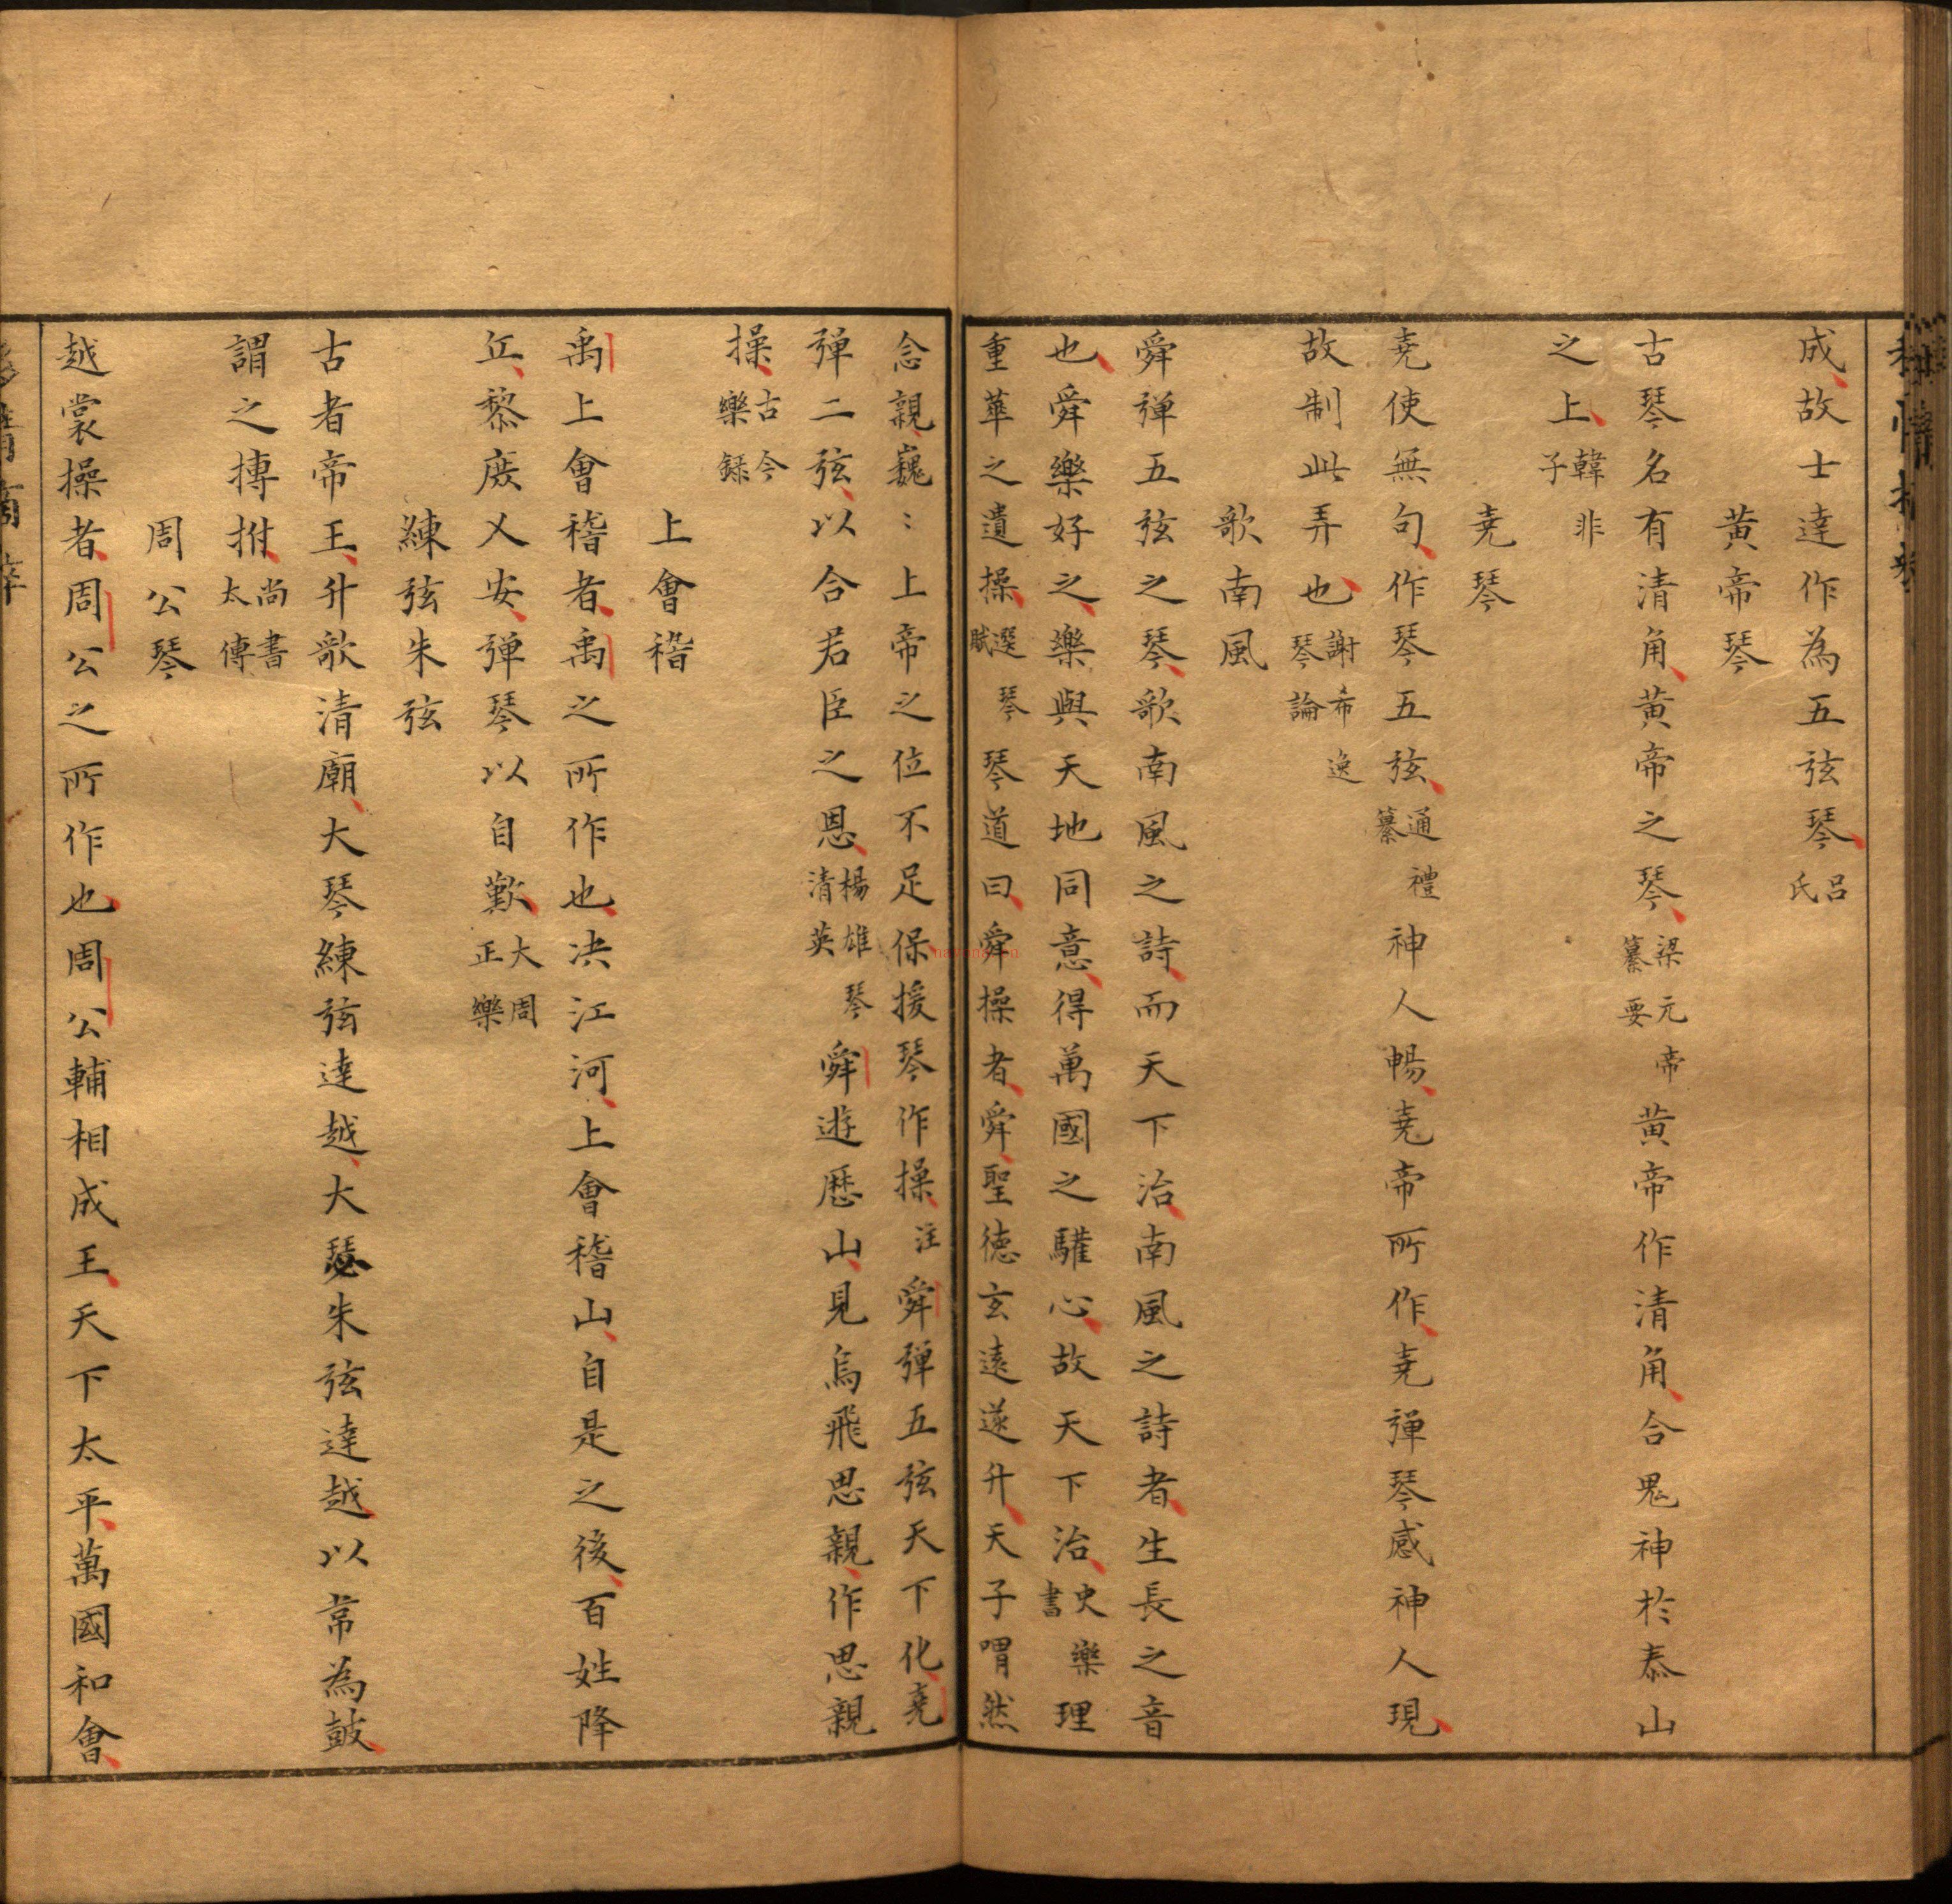 成故士達作為五弦琴呂氏
黃帝琴
古琴名有清角黃帝之琴梁元帝纂要黃帝作清角合鬼神於泰山
之上韓非子
堯琴
堯使無句作琴五弦通禮纂神人暢堯帝所作堯彈琴感神人現
故制此弄也謝希逸琴論
歌南風
舜弹五弦之琴歌南風之詩而天下治南風之詩者生長之音
也舜樂好之樂與天地同意得萬國之驩心故天下治史樂書理
重華之遺操選琴賦琴道曰舜操者舜聖德玄遠遂升天子喟然
念親巍〻上帝之位不足保援琴作操注舜弹五弦天下化堯
彈二弦以合君臣之恩楊雄琴清英舜遊歷山見烏飛思親作思親
操古今樂録
上會稽
禹上會稽者禹之所作也决江河上會稽山自是之後百姓降
丘黎庶乂安彈琴以自歎大周正樂
練弦朱弦
古者帝王升歌清廟大琴練弦達越大瑟朱弦達越以常為鼓
謂之搏拊尚書太傳
周公琴
越裳操者周公之所作也周公輔相成王天下太平萬國和會